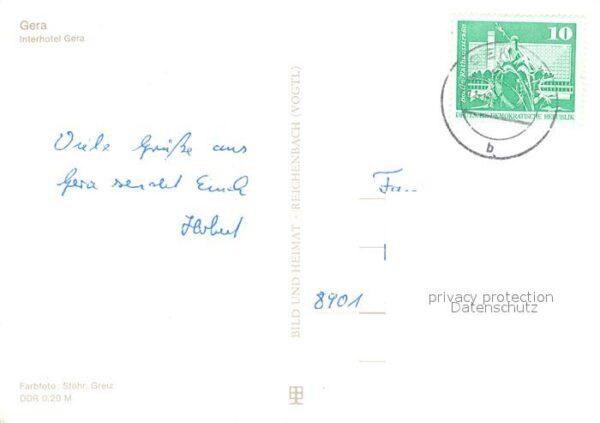 Gera
Interhotel Gera
10
Berlin, Rathausstraße
DEUTSCHE DEMOKRATISCHE REPUBLIK
b
Viele Grüße aus
Gera sendet Euch
BILD UND HEIMAT · REICHENBACH (VOGTL)
Fa..
8901
privacy protection
Datenschutz
Farbfoto: Stöhr, Greiz
DDR 0,20 M